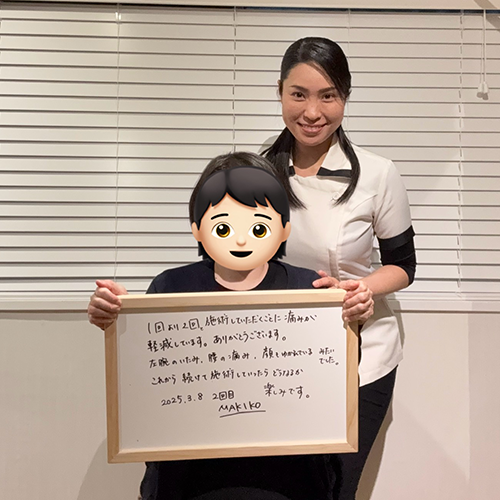 1回より2回、施術していただくごとに痛みが
軽減しています。ありがとうございます。
左腕のいたみ、腰の痛み、顔もゆがんでいるみたいでした。
これから続けて施術していったらどうなるか
楽しみです。
2025.3.8 2回目
MAKIKO